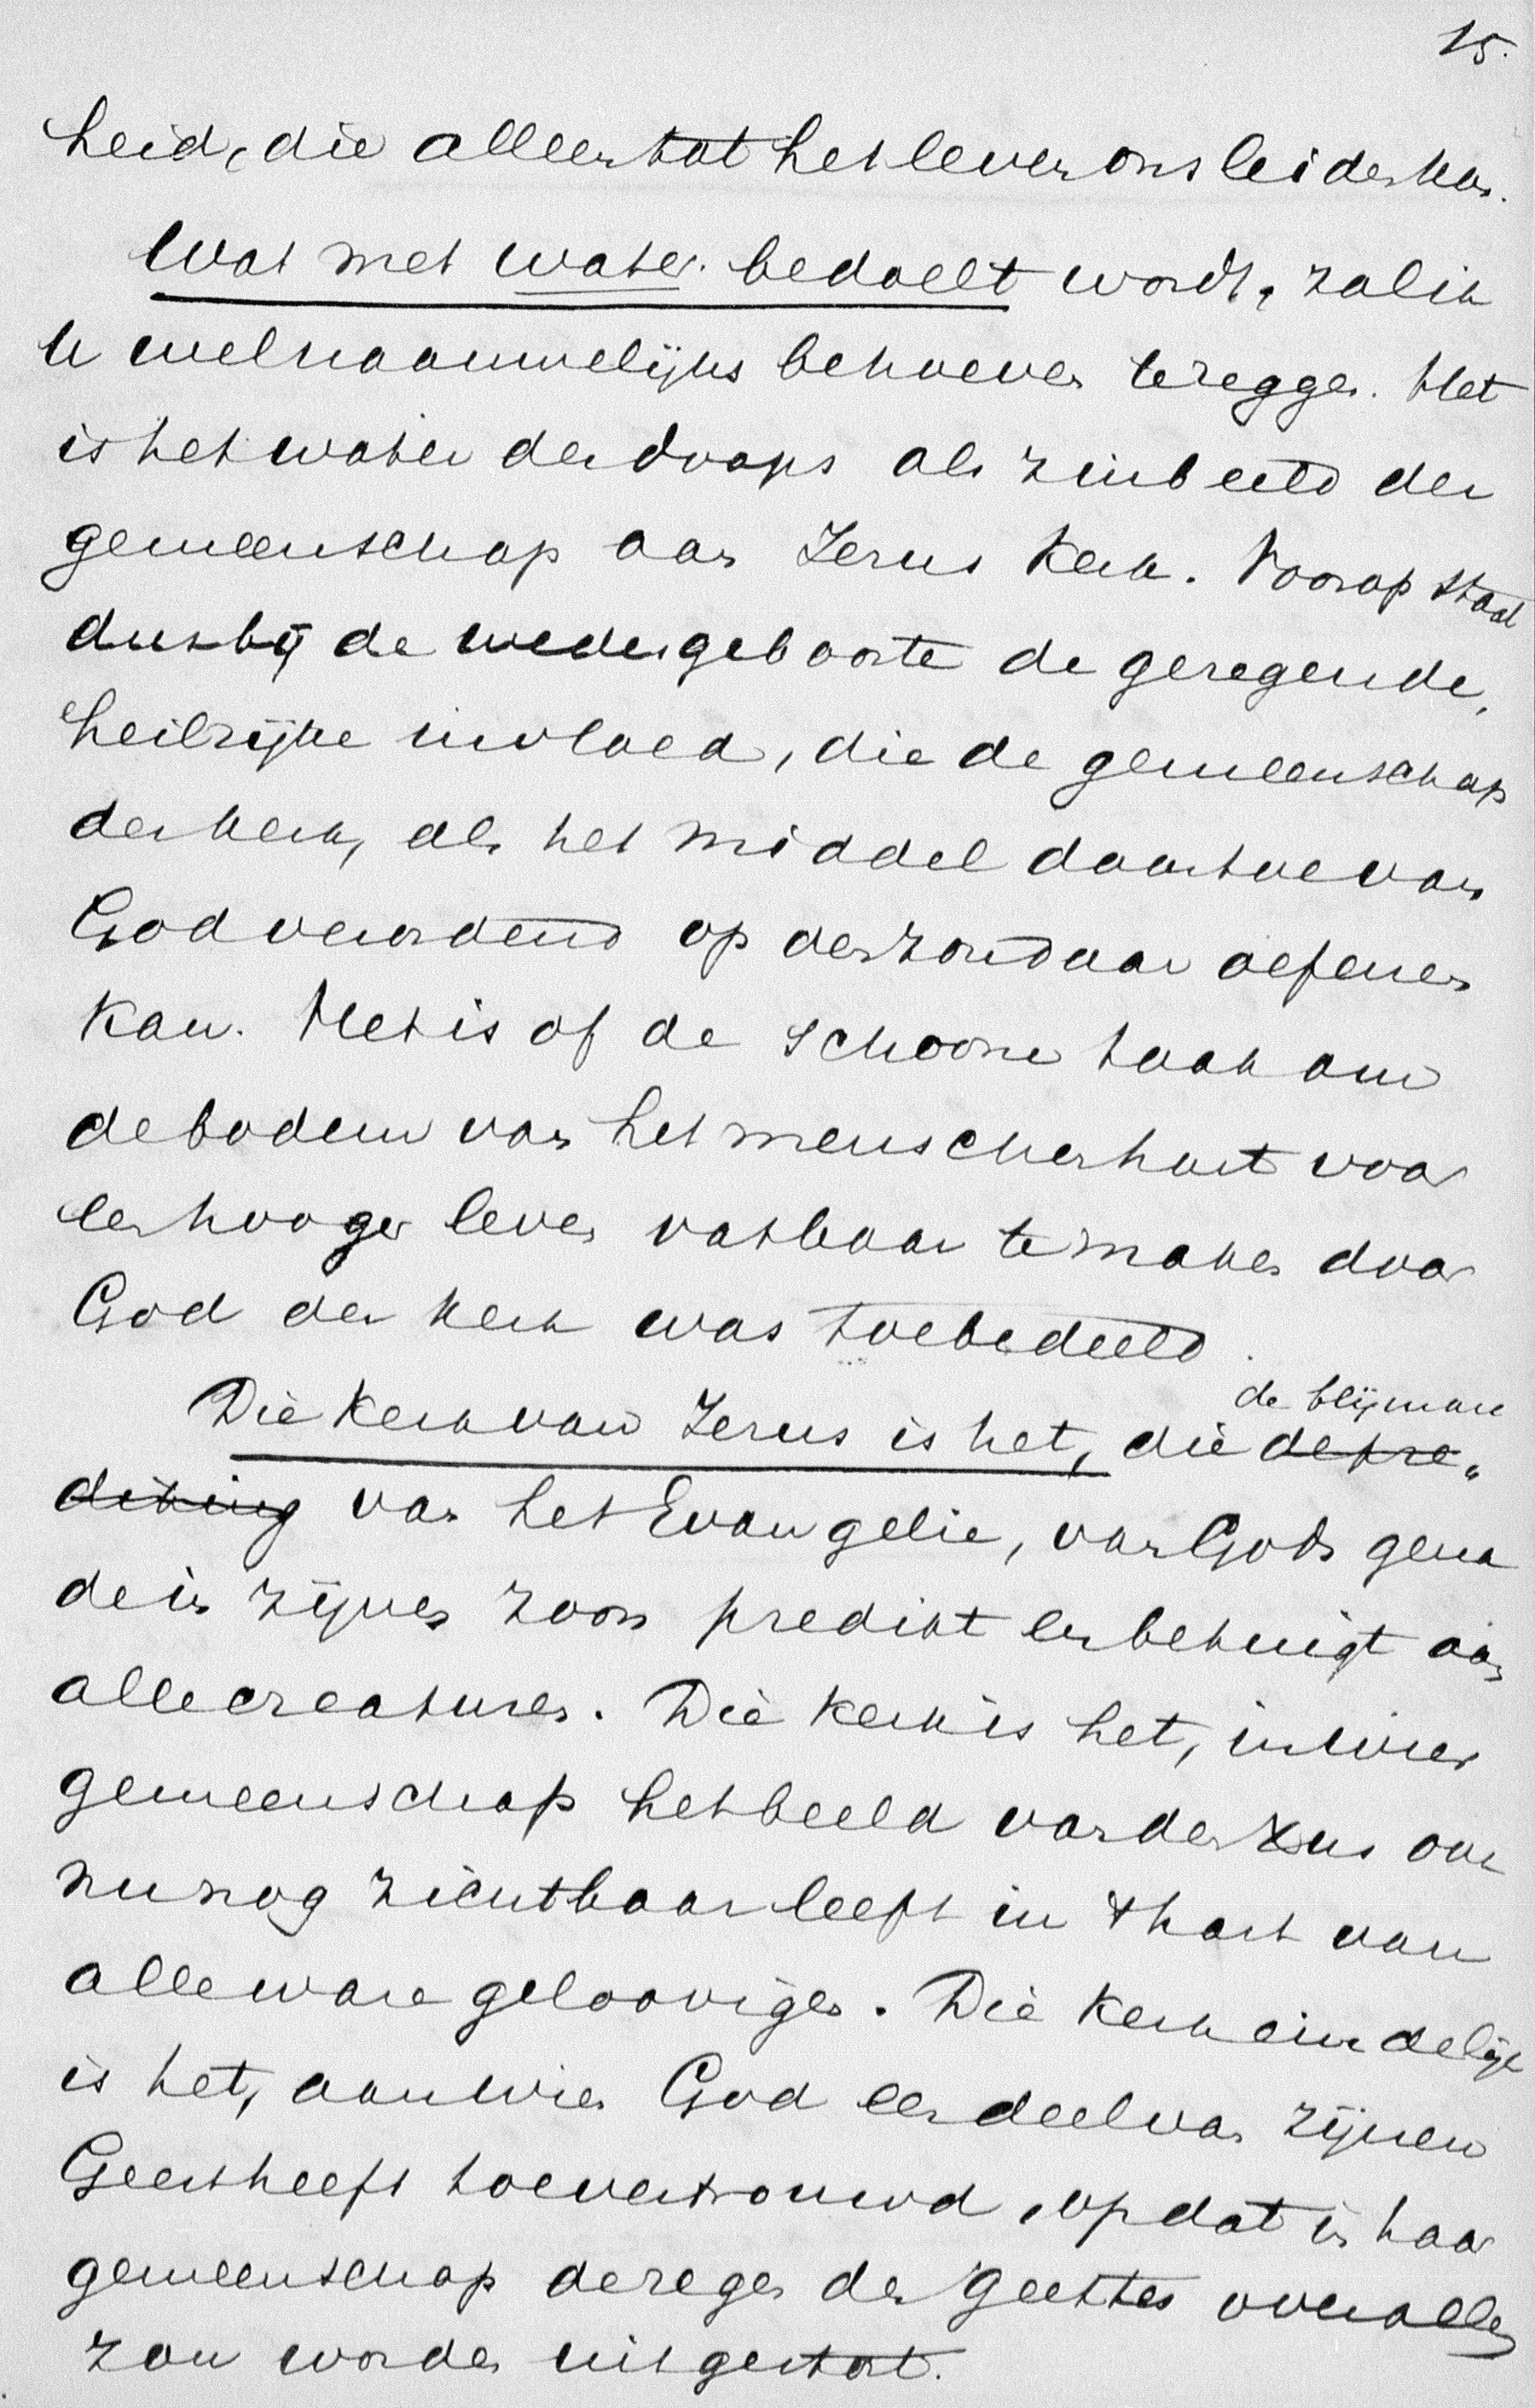 15.
heid, die alleen tot het leven ons leiden kan.
Wat met water bedoelt wordt, zal ik
U welnaauwelijks behoeven te zeggen. Het
is het water des doops als zinbeeld der
gemeenschap aan Jezus Kerk. Voorop staat
dus bij de wedergeboorte de gezegende,
heilrijke invloed, die de gemeenschap
der kerk, als het middel daartoe van
God verordend op den zondaar oefenen
kan. Het is of de schoone taak om
de bodem van het menschenhart voor
een hooger leven vatbaar te maken door
God der kerk was toebedeeld.
Die Kerk van Jezus is het, die de blijmare
van het Evangelie, van Gods gena
de in zijnen zoon predikt en betuigt aan
alle creaturen. Die Kerk is het, in wier
gemeenschap het beeld van den Zus ook
nu nog zichtbaar leeft in 't hart van
alle ware geloovigen. Die Kerk eindelijk
is het, aan wien God een deel van zijnen
Geest heeft toevertrouwd, opdat in haar
gemeenschap de zegen des Geestes over allen
zou worden uitgestort.